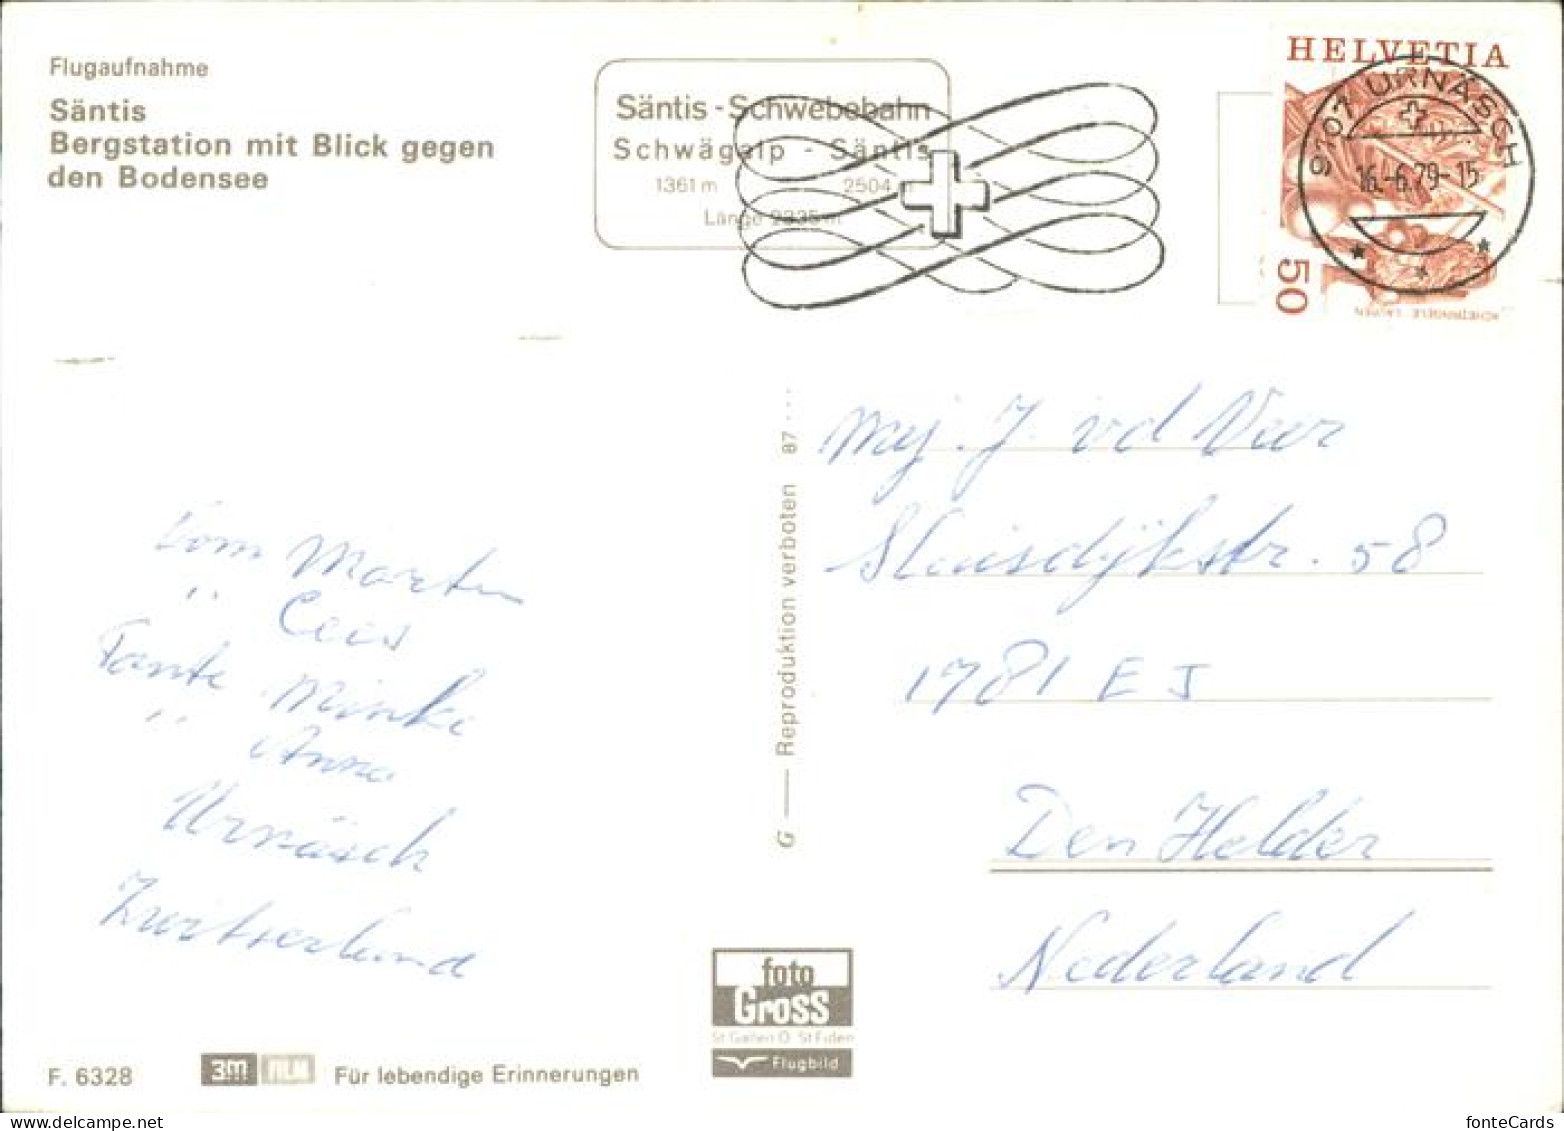 Flugaufnahme
Säntis
Bergstation mit Blick gegen
den Bodensee
Säntis - Schwebebahn
Schwägalp - Säntis
1361 m 2504 m
Länge m
HELVETIA
9107 URNÄSCH
16.-6.79-15
50
G — Reproduktion verboten 87 ...
Mej. J. vd Veer
Sluisdijkstr. 58
1781 EJ
Den Helder
Nederland
Martin
" Cees
Tante Minke
" Anna
Urnäsch
Zwitserland
foto
Gross
St Gallen O St Fiden
Flugbild
F. 6328
3M FILM Für lebendige Erinnerungen
fonteCards